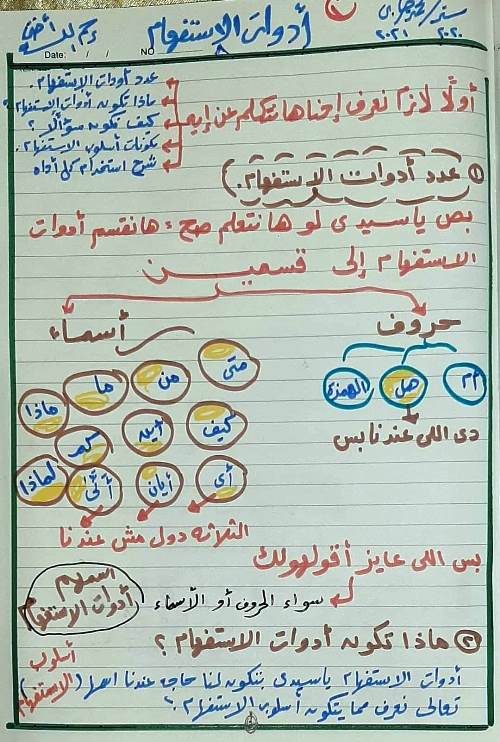 أدوات الاستفهام
٢٠٢٠
٢٠٢١
Date: / / NO
أولًا لازم نعرف إحنا هانتكلم عن إيه
عدد أدوات الاستفهام.
ماذا تكون أدوات الاستفهام؟
كيف تكون سؤالًا؟
مكونات أسلوب الاستفهام.
شرح استخدام كل أداه
١ عدد أدوات الاستفهام.
بص ياسيدى لو هانتعلم صح: هانقسم أدوات
الاستفهام إلى قسمين
حروف أسماء
أم هل الهمزة
دى اللى عندنا بس
متى من ما ماذا
كيف أين كم
أى أيان أنَّى لماذا
الثلاثه دول مش عندنا
بس اللى عايز أقولهولك
سواء الحروف أو الأسماء
اسمهم أدوات الاستفهام
٢ ماذا تكون أدوات الاستفهام؟
أدوات الاستفهام ياسيدى بتكون لنا حاجه عندنا اسمها (أسلوب الاستفهام)
تعالى نعرف مما يتكون أسلوب الاستفهام؟